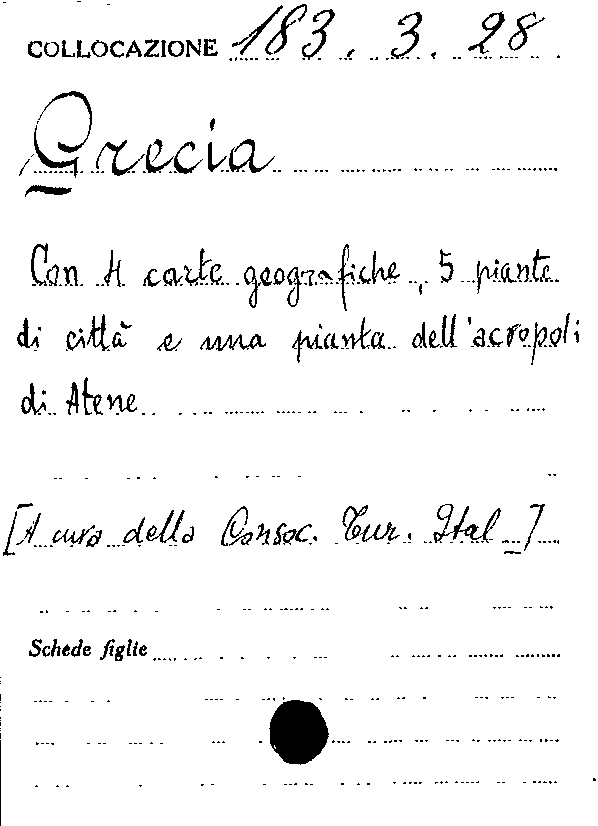 COLLOCAZIONE 183.3.28
Grecia
Con 4 carte geografiche, 5 piante
di città e una pianta dell'acropoli
di Atene
[A cura della Consoc. Tur. Ital_]
Schede figlie